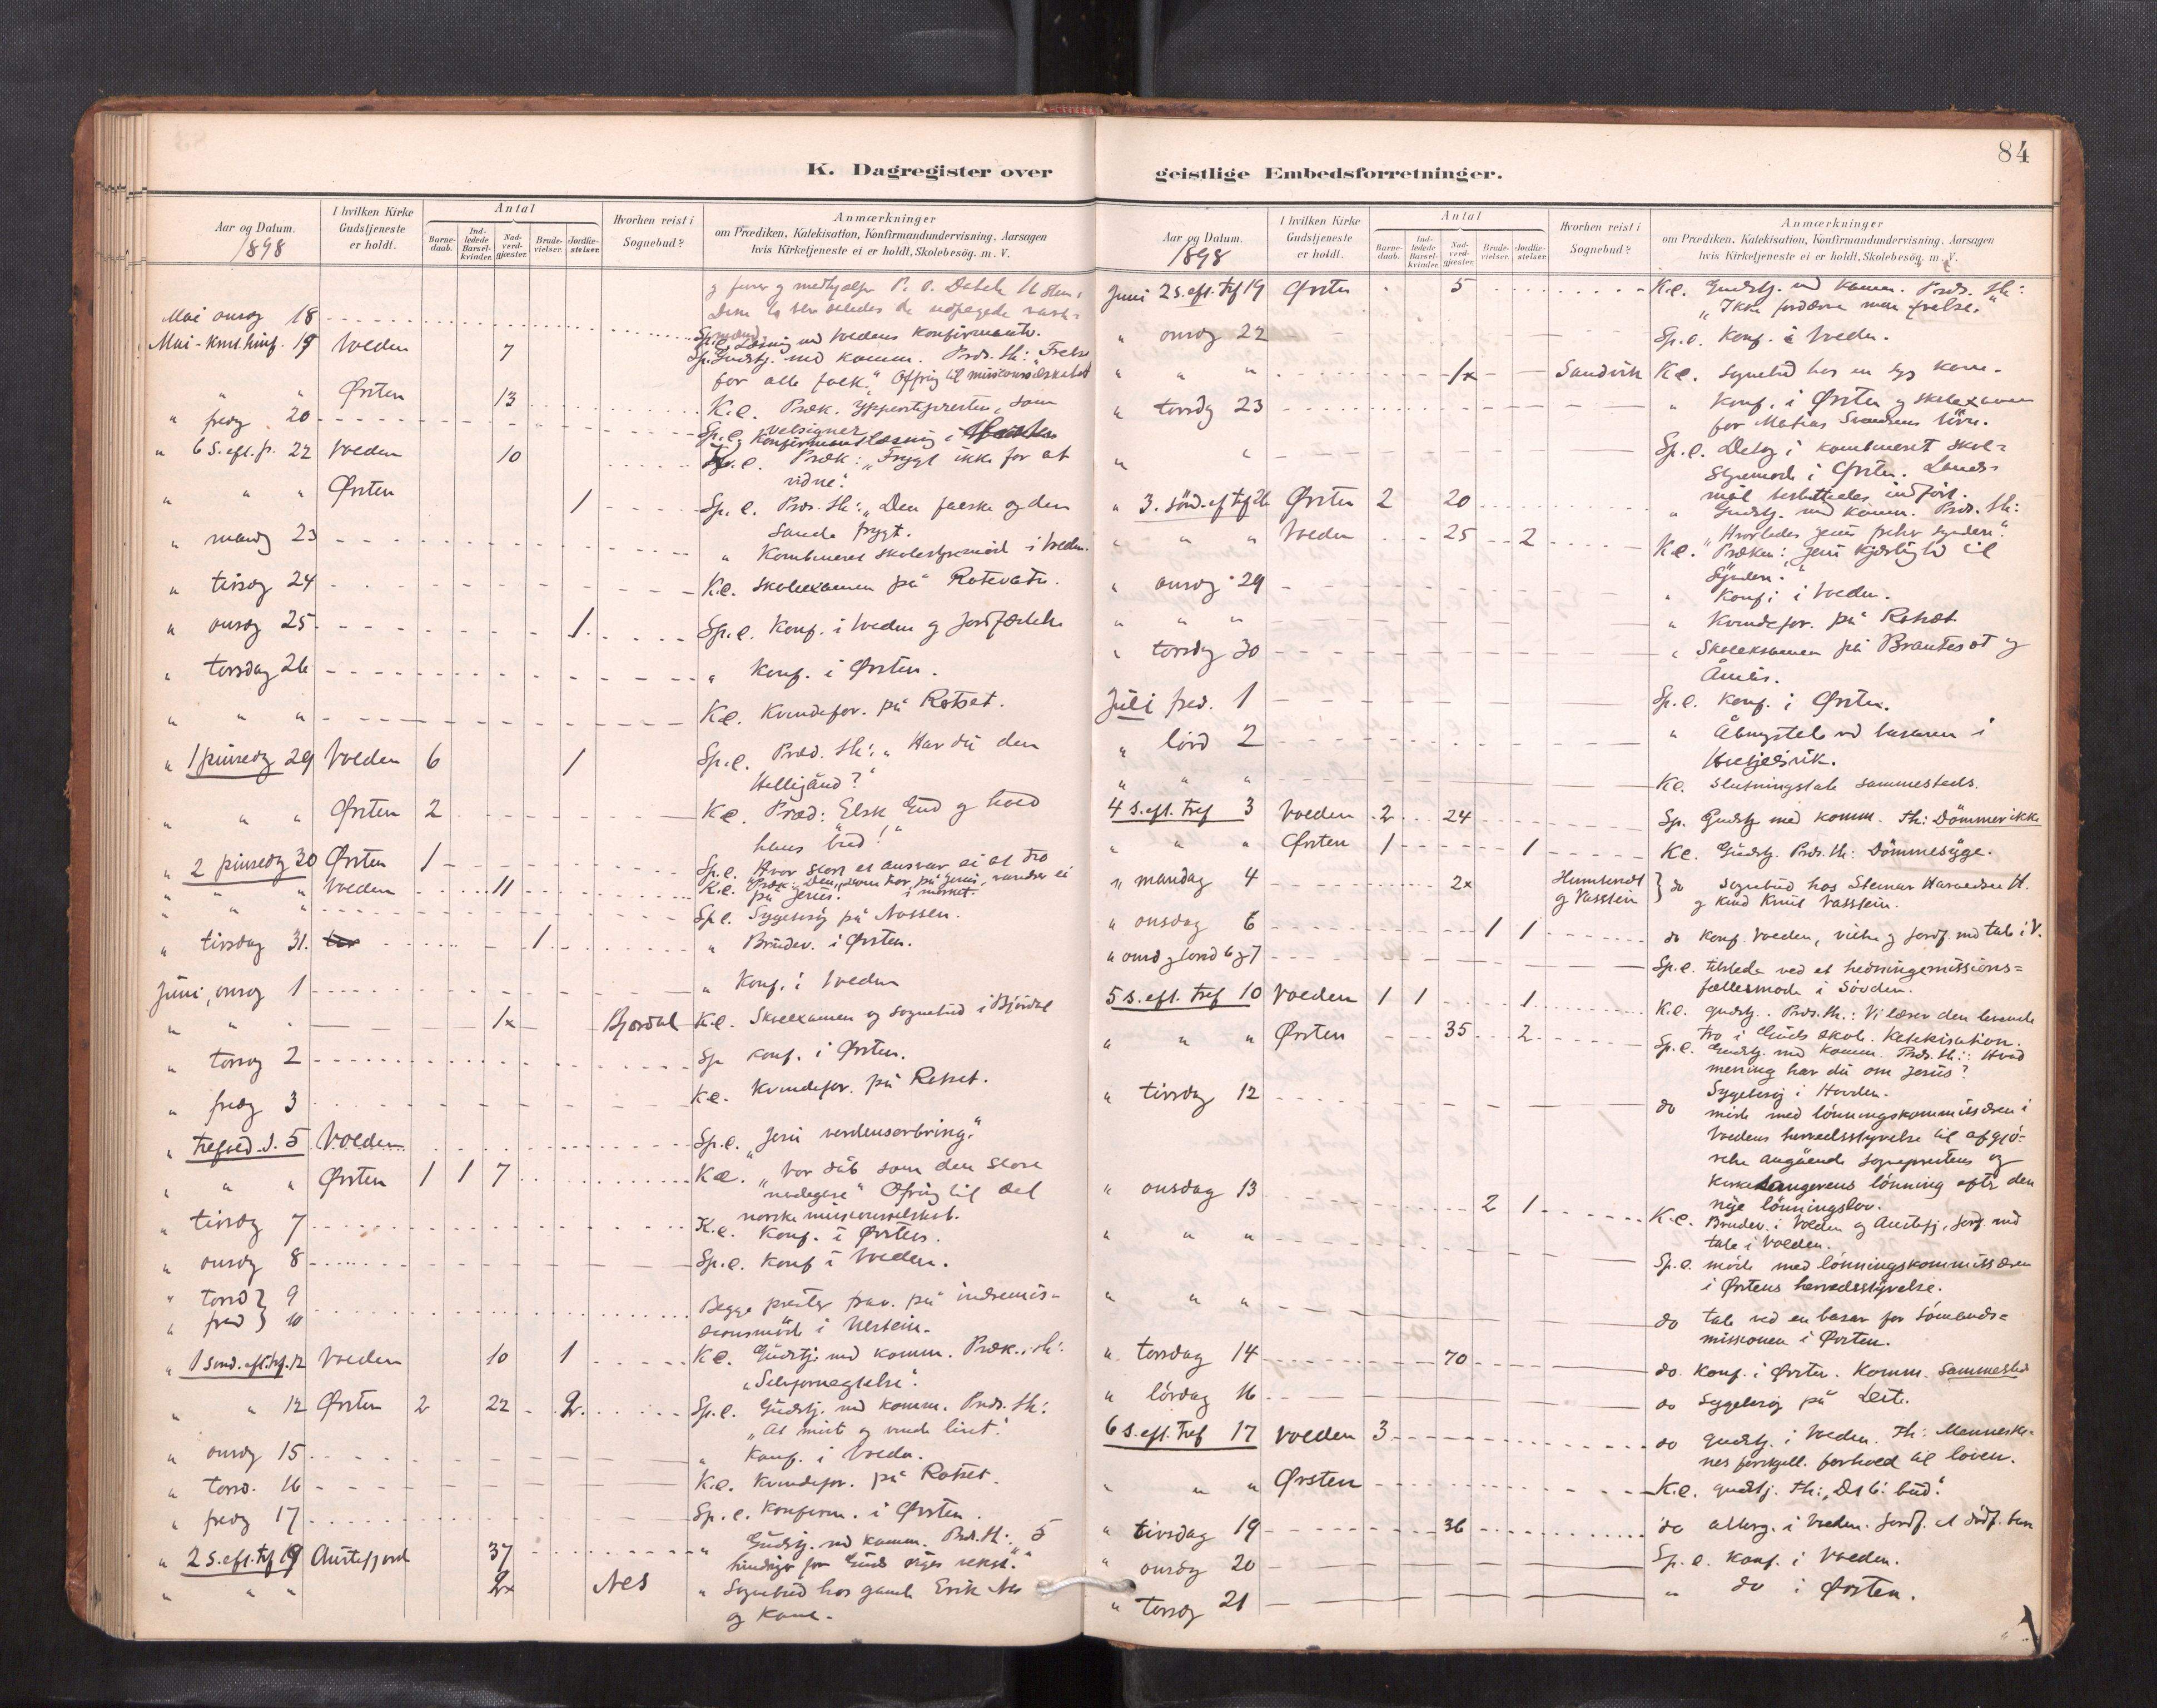 84
K. Dagregister over
geistlige Embedsforretninger.
Aar og Datum.
1898
I hvilken Kirke Gudstjeneste er holdt.
Antal
Barnedaab.
Indledede Barselkvinder.
Nadverdgjæster.
Brudevielser.
Jordfæstelser.
Hvorhen reist i Sognebud?
Anmærkninger
om Prædiken, Katekisation, Konfirmandundervisning, Aarsagen
hvis Kirketjeneste ei er holdt, Skolebesög. m. V.
Mai onsdg 18
Voldens konfirmanter.
Mai - Krist. himf. 19 Volden 7 Sp. Gudstj. med komm. Præd. th: "Frelse
for alle folk." Offring til missionsselskabet
" " Örsten 13 K.c. Præk. Ypperstepresten, som
velsigner
" fredg 20 Sp.c. Konfirmantlæsning i
" 6 S. eft. p. 22 Volden 10 K.c. Præk: "Frygt ikke for at
vidne".
" " " Örsten 1 Sp.c. Præd. th: "Den falske og den
sande frygt.
" mandg 23 " Kombineret skolestyremöd i Volden.
" tirsdg 24 K.c. Skoleexamen på Rotevatn.
" onsdg 25 1 Sp.c. Konf. i Volden og jordfæstelse
" torsdag 26 " Konf. i Örsten.
" " " K.c. Kvindefor. på Rotset.
" 1 pinsedg 29 Volden 6 1 Sp.c. Præd. th: "Har du den
Helligånd?"
" " " Örsten 2 K.c. Præd: "Elsk Gud og hold
hans bud!"
" 2 pinsedg 30 Örsten 1 Sp.c. Hvor stort et ansvar ei at tro
på Jesus.
" " " Volden 11 K.c. Præk: Den, som tror på Jesus, vandrer ei
i mørket.
" " " Sp.c. Sygebesög på Nossen.
" tirsdag 31. 1 " Brudev. i Örsten.
Juni, onsdg 1 " Konf. i Volden
" " " 1x Bjørdal K.c. Skoleexamen og sognebud i Björdal
" torsdg 2 Sp konf. i Örsten.
K.c. Kvindefor. på Rotset.
" fredg 3
" Trefold. S. 5 Volden Sp.c. "Jesu verdenserobring."
" " " Örsten 1 1 7 K.c. "Vor dåb som den store
" Ofring til det
norske missionsselskab.
" tirsdg 7 K.c. Konf. i Örsten.
" onsdg 8 Sp.c. Konf i Volden.
" torsd 9
" fred 10 Begge prester frav. på indremis-
sionsmöde i Ulstein.
" 1 sönd. eft. tref. 12 Volden 10 1 K.c. Gudstj. med komm. Præk. th:
"Selvfornegtelse".
" " 12 Örsten 2 22 2 Sp.c. Gudstj. med komm. Præd. th:
"At miste og vinde livet".
" onsdg 15 " Konf. i Volden.
" torsd. 16 K.c. Kvindefor. på Rotset.
" fredg 17 Sp.c. Konfirm. i Örsten.
" 2 S. eft. tref 19 Austefjord 37 " Gudstj. med komm. Præd. th: "5
hindringer for Guds riges vekst."
" " " 2x Nes " Sognebud hos gamle Erik Nes
og kone.
Aar og Datum.
1898
I hvilken Kirke Gudstjeneste er holdt.
Antal
Barnedaab.
Indledede Barselkvinder.
Nadverdgjæster.
Brudevielser.
Jordfæstelser.
Hvorhen reist i Sognebud?
Anmærkninger
om Prædiken, Katekisation, Konfirmandundervisning, Aarsagen
hvis Kirketjeneste ei er holdt, Skolebesög, m. V.
Juni 2 S. eft. tref 19 Örsten 5 K.c. Gudstj. med komm. Præd. th:
"Ikke fordærve men frelse."
" onsdg 22 Sp.c. Konf. i Volden.
" " " 1x Sandvik K.c. Sognebud hos en syg kone.
" torsdg 23 " Konf. i Örsten og skolexamen
for Matias
" " Sp.c. Deltog i kombineret skole-
styremöde i Örsten. Lands-
mål besluttedes indfört.
" 3. sönd. eft tref 26 Örsten 2 20 " Gudstj. med komm. Præd. th:
"Hvorledes Jesus synderen".
" " " Volden 25 2 K.c. Præken: "Jesu kjærlighed til
Synderen."
" onsdg 29 " Konf. i Volden.
" " " " Kvindefor. på Rotset.
" torsdg 30 " Skoleksamen på og
Åmås.
Juli fred. 1 Sp.c. Konf. i Örsten.
" lörd 2 " Åbningstale ved basaren i
" " " K.c. Slutningstale sammesteds.
4 s. eft. tref 3 Volden 2 24 Sp. Gudstj med komm. Th: Dömmer ikke
" " " Örsten 1 1 K.c. Gudstj. Præd. th: Dömmesyge.
" mandag 4 2x
og Vassbein do Sognebud hos Steinar Haraldsen H.
og Knut Vassbein.
" onsdag 6 1 1 do konf. Volden, vielse og jordf. med tale i V.
" onsd og torsd 6 og 7 Sp.c. tilstede ved et hedningemissions-
fællesmöde i Sövden.
5 s. eft. tref 10 Volden 1 1 1 K.c. gudstj. Præd. th.: Vi lærer den levende
tro i Guds skole. Katekisation.
" " " Örsten 35 2 Sp.c. Gudstj. med komm. Præd. th:: Hvad
mening har du om Jesus?
" tirsdag 12 Sygebesög i Hovden.
do möde med lönningskommissæren i
Voldens herredsstyrelse til afgjö-
relse angående sogneprestens og
kirkesangerens lönning efter den
nye lönningslov.
" onsdag 13 2 1 K.c. Brudev. i Volden og Austefj, jordf. med
tale i Volden.
" " " Sp.c. möde med lönningskommissæren
i Örstens herredsstyrelse.
" " " do tale ved en basar for Sömands-
missionen i Örsten.
" torsdag 14 70 do. konf. i Örsten. Komm. Sammested
" lördag 16 do Sygebesög på Leite.
6 s. eft. Tref 17 Volden 3 do Gudstj. i Volden. Th: Menneske-
nes forskjell. forhold til loven.
" " " Örsten K.c. gudstj. Th: "Det 6. bud".
" tirsdag 19 36 do alterg. i Volden. Jordf. et dödf. barn
" onsdg 20 Sp.c. konf. i Volden.
" torsdg 21 " do i Örsten.